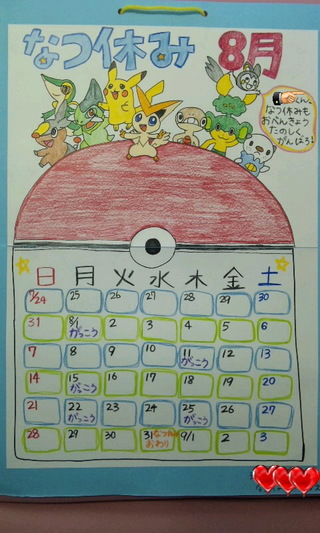 なつ休み 8月
くん、
なつ休みも
おべんきょう
たのしく
がんばろう!
日 月 火 水 木 金 土
7/24 25 26 27 28 29 30
31 8/1 2 3 4 5 6
がっこう
7 8 9 10 11 12 13
がっこう
14 15 16 17 18 19 20
がっこう
21 22 23 24 25 26 27
がっこう がっこう
28 29 30 31 なつやすみ 9/1 2 3
おわり